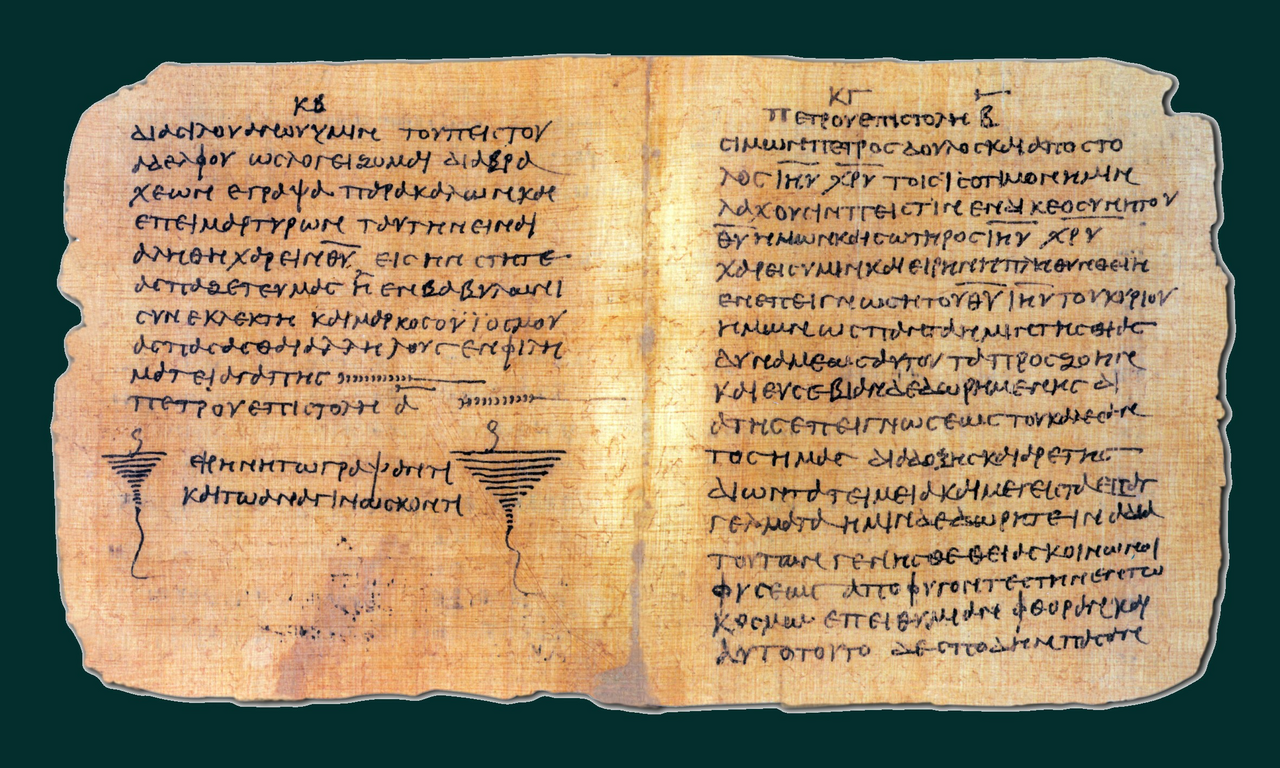 ΚΒ
ΔΙΑСΙΛΟΥΑΝΩΝΥΜΙΝ ΤΟΥΠΕΙСΤΟΥ
ΑΔΕΛΦΟΥ ΩСΛΟΓΕΙΖΟΜΑΙ ΔΙΑΒΡΑ
ΧΕΩΝ ΕΓΡΑΨΑ ΠΑΡΑΚΑΛΩΝΚΑΙ
ΕΠΕΙΜΑΡΤΥΡΩΝ ΤΑΥΤΗΝΕΙΝΑΙ
ΑΛΗΘΗΧΑΡΕΙΝΘΥ ΕΙСΗΝ СΤΗΤΕ
ΑСΠΑΖΕΤΕΥΜΑС Η ΕΝΒΑΒΥΛΩΝΙ
СΥΝΕΚΛΕΚΤΗ ΚΑΙΜΑΡΚΟСΟΥΪΟСΜΟΥ
ΑСΠΑСΑСΘΑΙΑΛΛΗΛΟΥС ΕΝΦΙΛΗ
ΜΑΤΕΙΑΓΑΠΗС
ΠΕΤΡΟΥΕΠΙСΤΟΛΗ Α
ΕΙΡΗΝΗΤΩΓΡΑΨΑΝΤΙ
ΚΑΙΤΩΑΝΑΓΙΝΩСΚΟΝΤΙ
ΚΓ
ΠΕΤΡΟΥΕΠΙСΤΟΛΗ Β
СΙΜΩΝΠΕΤΡΟС ΔΟΥΛΟСΚΑΙΑΠΟСΤΟ
ΛΟС ΙΗΥ ΧΡΥ ΤΟΙС ΙСΟΤΙΜΟΝΗΜΙΝ
ΛΑΧΟΥСΙΝΠΕΙСΤΙΝ ΕΝΔΙΚΕΟСΥΝΗΤΟΥ
ΘΥ ΗΜΩΝΚΑΙСΩΤΗΡΟС ΙΗΥ ΧΡΥ
ΧΑΡΕΙСΥΜΙΝΚΑΙΕΙΡΗΝΗΠΛΗΘΥΝΘΕΙΗ
ΕΝΕΠΕΙΓΝΩСΗΤΟΥΘΥ ΙΗΥ ΤΟΥΚΥΡΙΟΥ
ΗΜΩΝ ΩС ΠΑΝΤΑΗΜΙΝΤΗСΘΙΑС
ΔΥΝΑΜΕΩСΑΥΤΟΥ ΤΑΠΡΟСΖΟΗΝ
ΚΑΙΕΥСΕΒΙΑΝΔΕΔΩΡΗΜΕΝΗС ΔΙ
ΑΤΗСΕΠΕΙΓΝΩСΕΩС ΤΟΥΚΑΛΕСΑΝ
ΤΟСΗΜΑС ΔΙΑΔΟΞΗСΚΑΙΑΡΕΤΗС
ΔΙΩΝΤΑΤΕΙΜΕΙΑΚΑΙΜΕΓΕΙСΤΑΕΠΑΓ
ΓΕΛΜΑΤΑ ΗΜΙΝΔΕΔΩΡΗΤΕΙΝΑΔΙΑ
ΤΟΥΤΩΝ ΓΕΝΗСΘΕΘΕΙΑСΚΟΙΝΩΝΟΙ
ΦΥСΕΩС ΑΠΟΦΥΓΟΝΤΕСΤΗΝΕΝΤΩ
ΚΟСΜΩ ΕΠΕΙΘΥΜΕΙΑΝ ΦΘΟΡΑΝΚΑΙ
ΑΥΤΟΤΟΥΤΟ ΔΕСΠΟΔΗΝΠΑСΑΝ